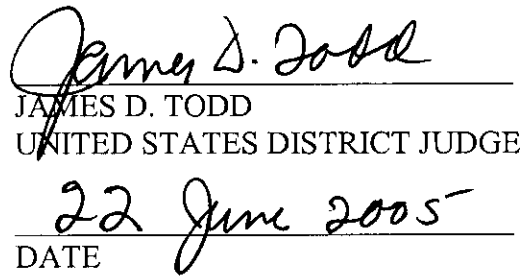 James D. Todd
JAMES D. TODD
UNITED STATES DISTRICT JUDGE
22 June 2005
DATE